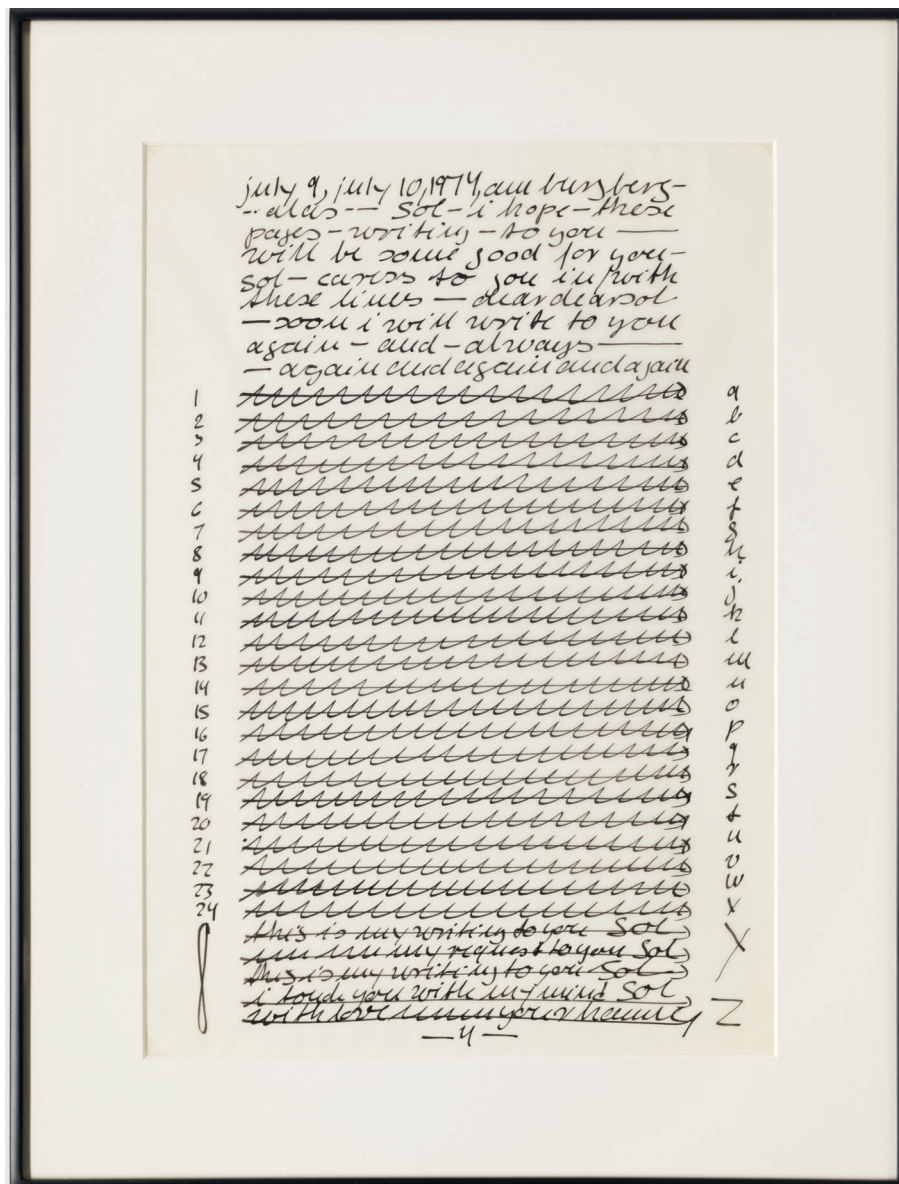 july 9, july 10, 1974, am burgberg-
-- alas -- Sol - i hope - these
pages - writing - to you —
will be some good for you -
sol - caress to you in/with
these lines — dear dear sol
— soon i will write to you
again - and - always —
— again and again and again
1 a
2 b
3 c
4 d
5 e
6 f
7 g
8 h
9 i
10 j
11 k
12 l
13 m
14 n
15 o
16 p
17 q
18 r
19 s
20 t
21 u
22 v
23 w
24 x
this is my writing to you Sol
my request to you Sol y
this is my writing to you Sol
i touch you with my mind Sol
with love your hanne z
— 4 —